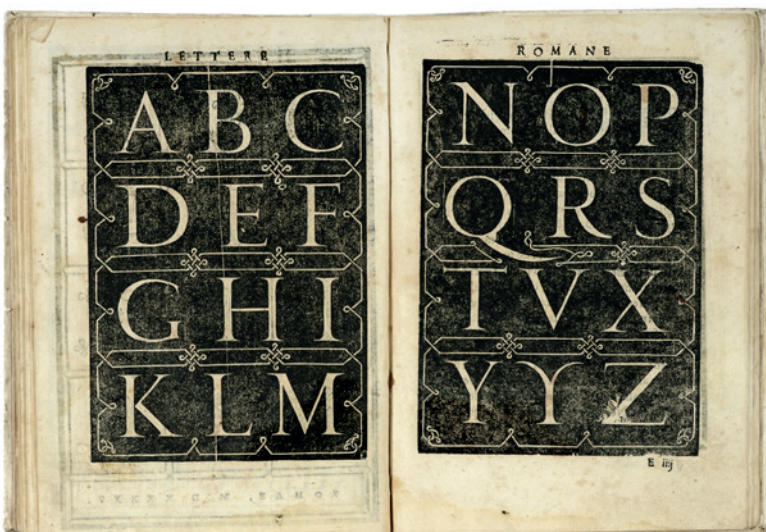 LETTERE
A B C
D E F
G H I
K L M
ROMANE
N O P
Q R S
T V X
Y Y Z
E iiij